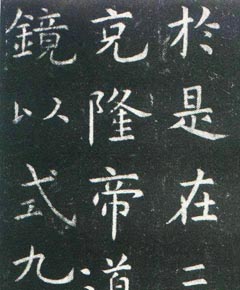 於是在三
克隆帝道
鏡以式九